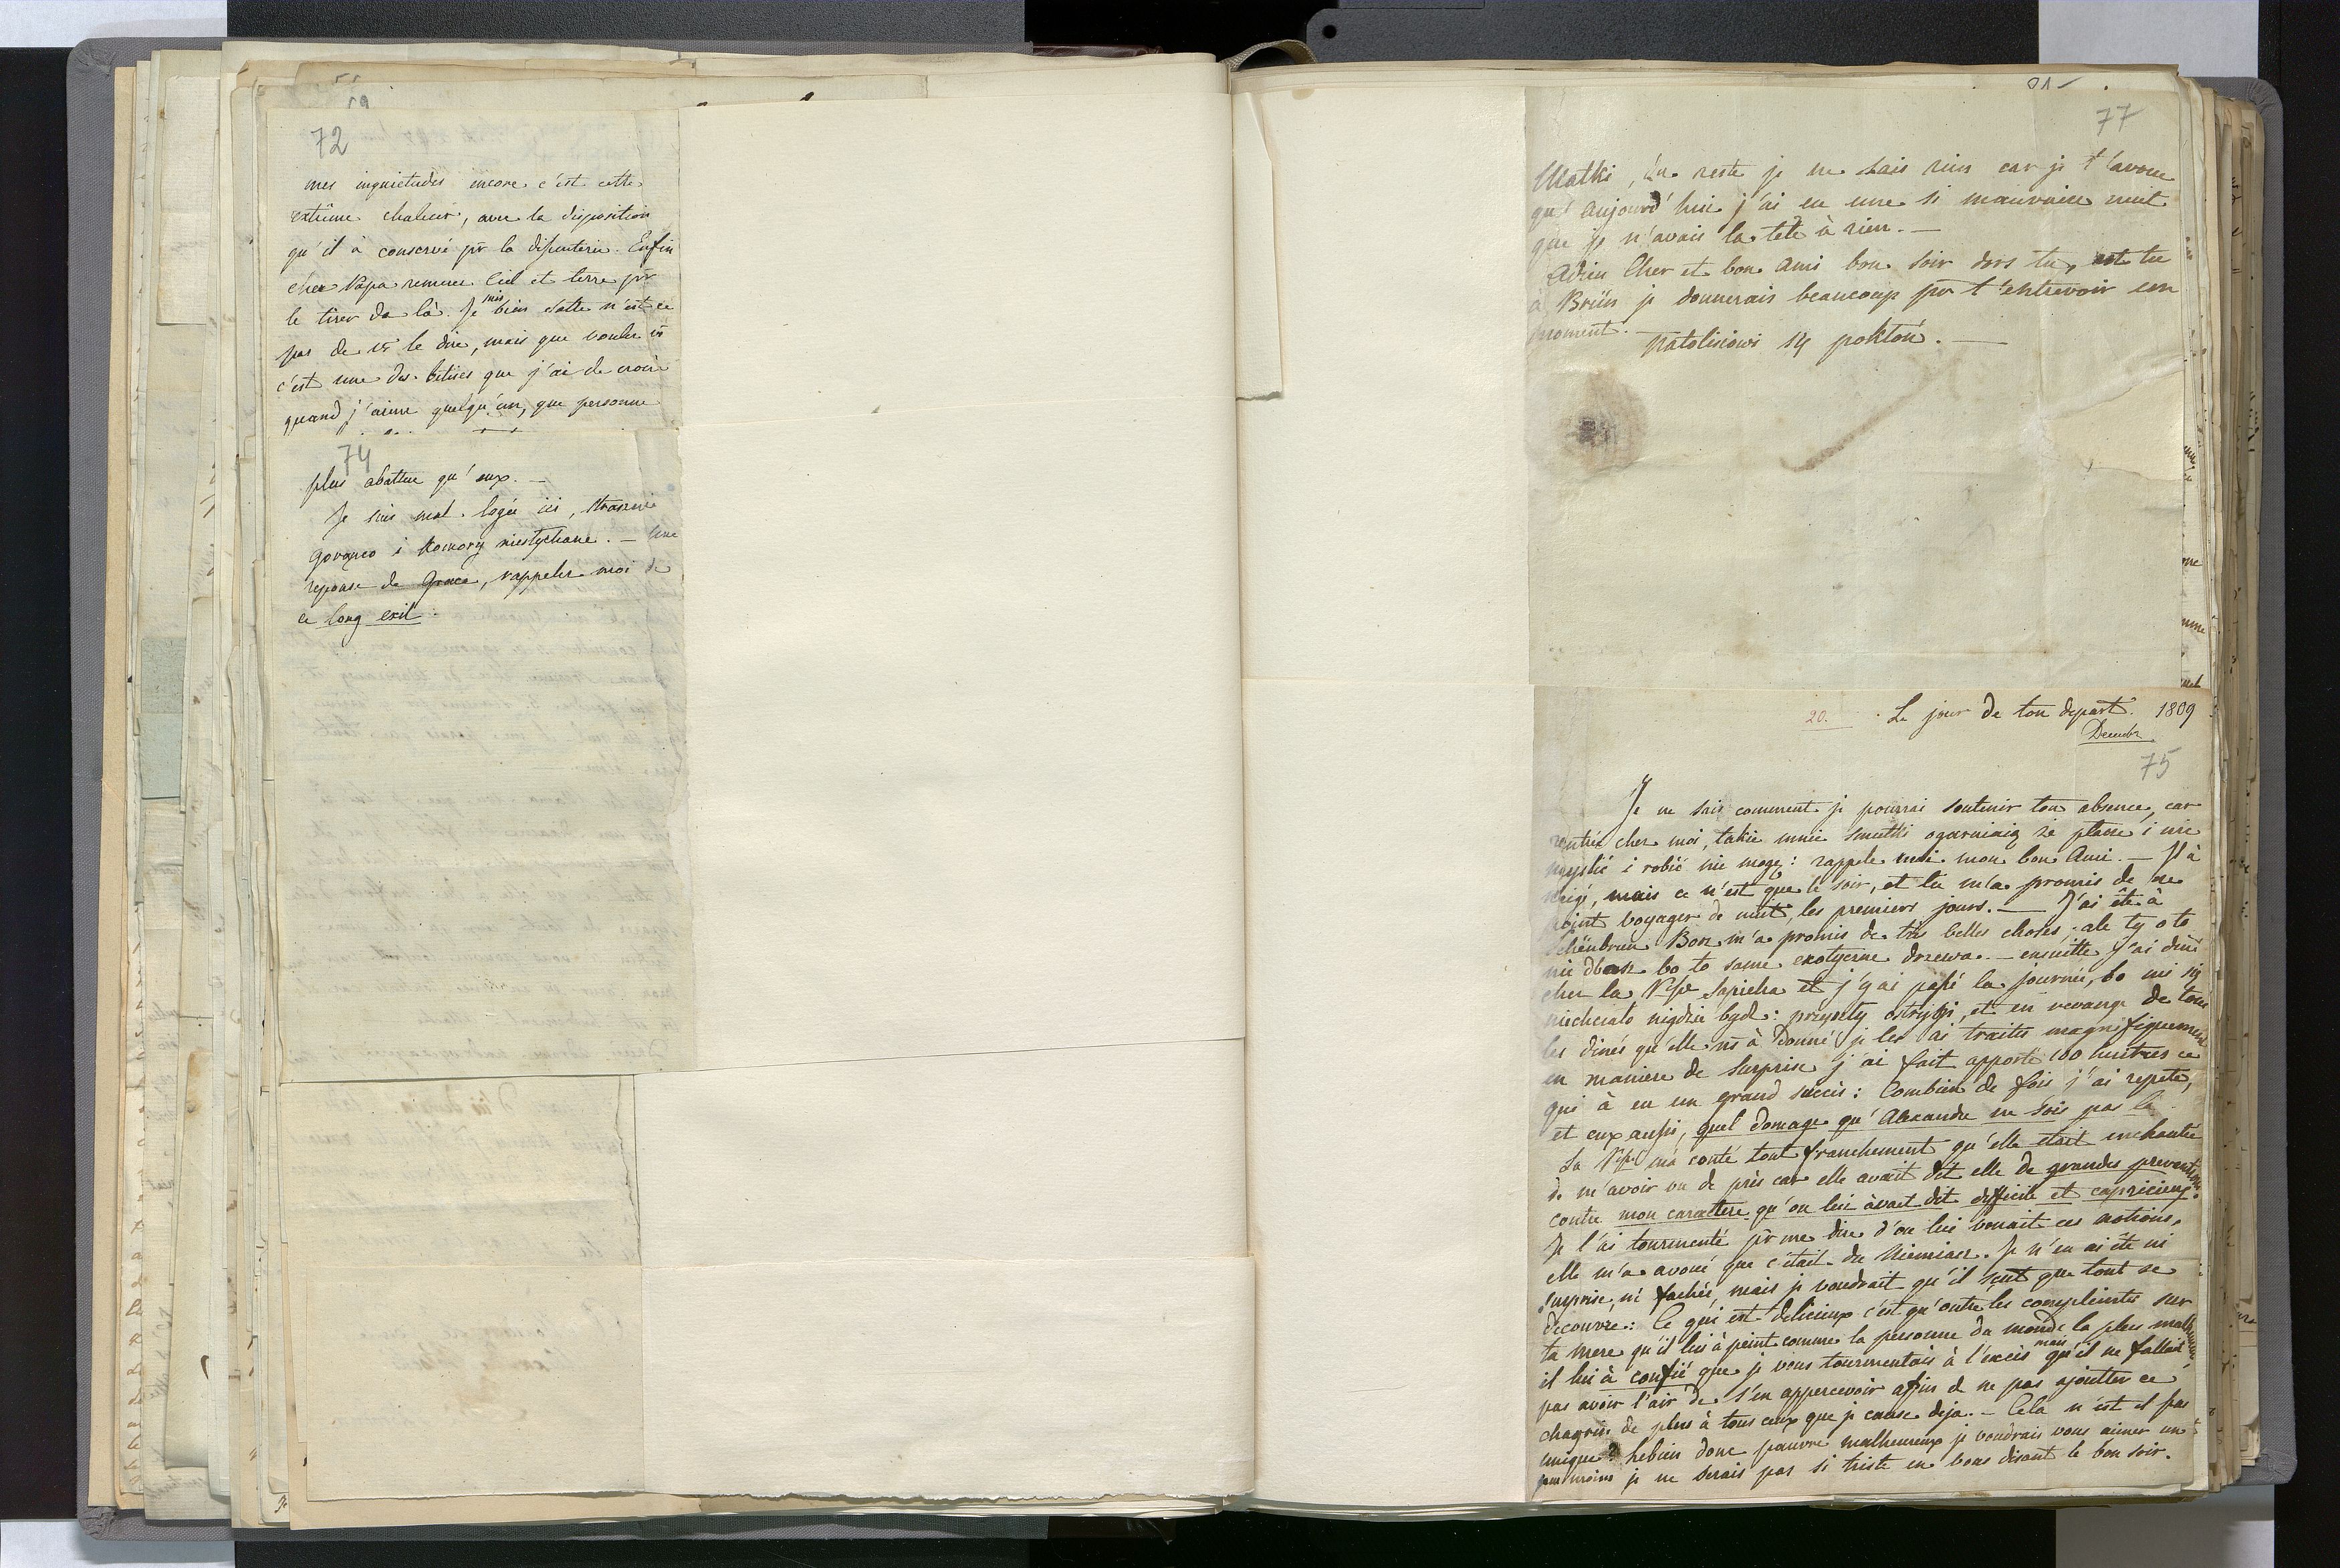 72
mes inquietudes encore c'est cette
extrême chaleur, avec la disposition
qu'il à conservé pr la disenterie. Enfin
cher Papa remuez Ciel et terre pr
le tirer de là. Je suis bien sotte n'est ce
pas de vs le dire, mais que voulez vs
c'est une des bêtises que j'ai de croire
quand j'aime quelqu'un, que personne
74
plus abattue qu'eux. —
Je suis mal logée ici, strasznie
gorąco i komory niesłychane. — Une
reponse de Grace, rappelez moi de
ce long exil.
77
Matki, du reste je ne sais rien car je t'avoue
qu'aujourd'hui j'ai eu une si mauvaise nuit
que je n'avais la tête à rien. —
Adieu Cher et bon Ami bon soir dors tu, est tu
à Brün je donnerais beaucoup pr t'entrevoir un
moment.
Natolisiowi 14 pokłon. —
20. Le jour de ton depart. 1809
Decembr
75
Je ne sais comment je pourrai soutenir ton absence, car
rentrée chez moi, takie mnie smutki ogarniaią że płaczę i nie
myslić i robić nie mogę: rappele moi mon bon Ami. — Il à
neigé, mais ce n'est que le soir, et tu m'a promis de ne
point voyager de nuit, les premiers jours. — J'ai êté à
Schönbrun Boz m'a promis de très belles choses, ale ty o to
nie dbasz bo to same exotyczne drzewa. — ensuitte j'ai diné
chez la Psse Sapieha et j'y ai passé la journée, bo mi się
niechciało nigdzie bydź: przyszły ostrygi, et en revange de tous
les dinés qu'elle ns à donné je les ai traités magnifiquement
en maniere de surprise j'ai fait apporté 100 huitres ce
qui à eu un grand succès: Combien de fois j'ai repeté,
et eux aussi, quel domage qu'Alexandre ne sois pas là.
La Psse m'a conté tout franchement qu'elle etait enchantée
de m'avoir vu de près car elle avait dit elle de grandes preventions
contre mon caractere qu'on lui àvait dit difficile et capricieux.
Je l'ai tourmenté pr me dire d'ou lui venait ces notions,
elle m'a avoué que c'était du Niemiaz. Je n'en ai été ni
surprise, ni fachée, mais je voudrait qu'il sçut que tout se
decouvre: Ce qui est delicieux c'est qu'outre les complaintes sur
ta Mere qu'il lui à peint comme la personne du monde la plus malheureuse,
il lui à confié que je vous tourmentais à l'excès mais qu'il ne fallait
pas avoir l'air de s'en appercevoir affin d ne pas ajoutter ce
chagrin de plus à tous ceux que je cause deja. — Cela n'est il pas
unique? hebien donc pauvre malheureux je voudrais vous aimer un
peu moins je ne serais pas si triste en vous disant le bon soir.